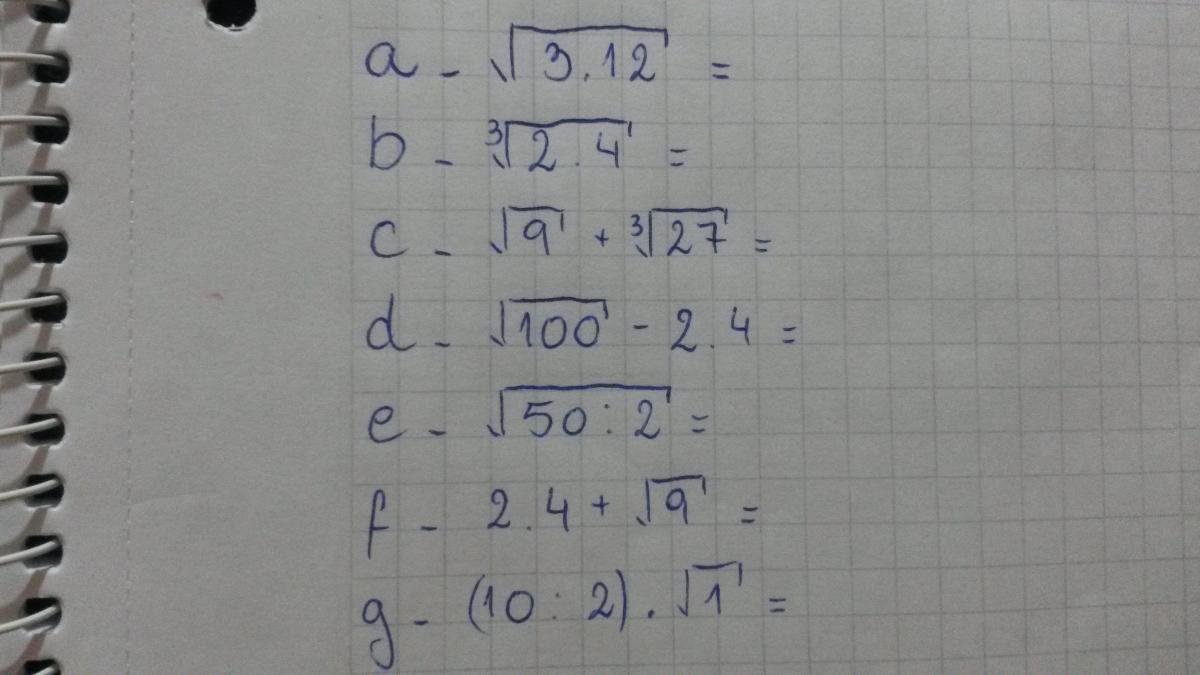 a - √3.12 =
b - ∛2.4 =
c - √9 + ∛27 =
d - √100 - 2.4 =
e - √50:2 =
f - 2.4 + √9 =
g - (10 : 2) . √1 =